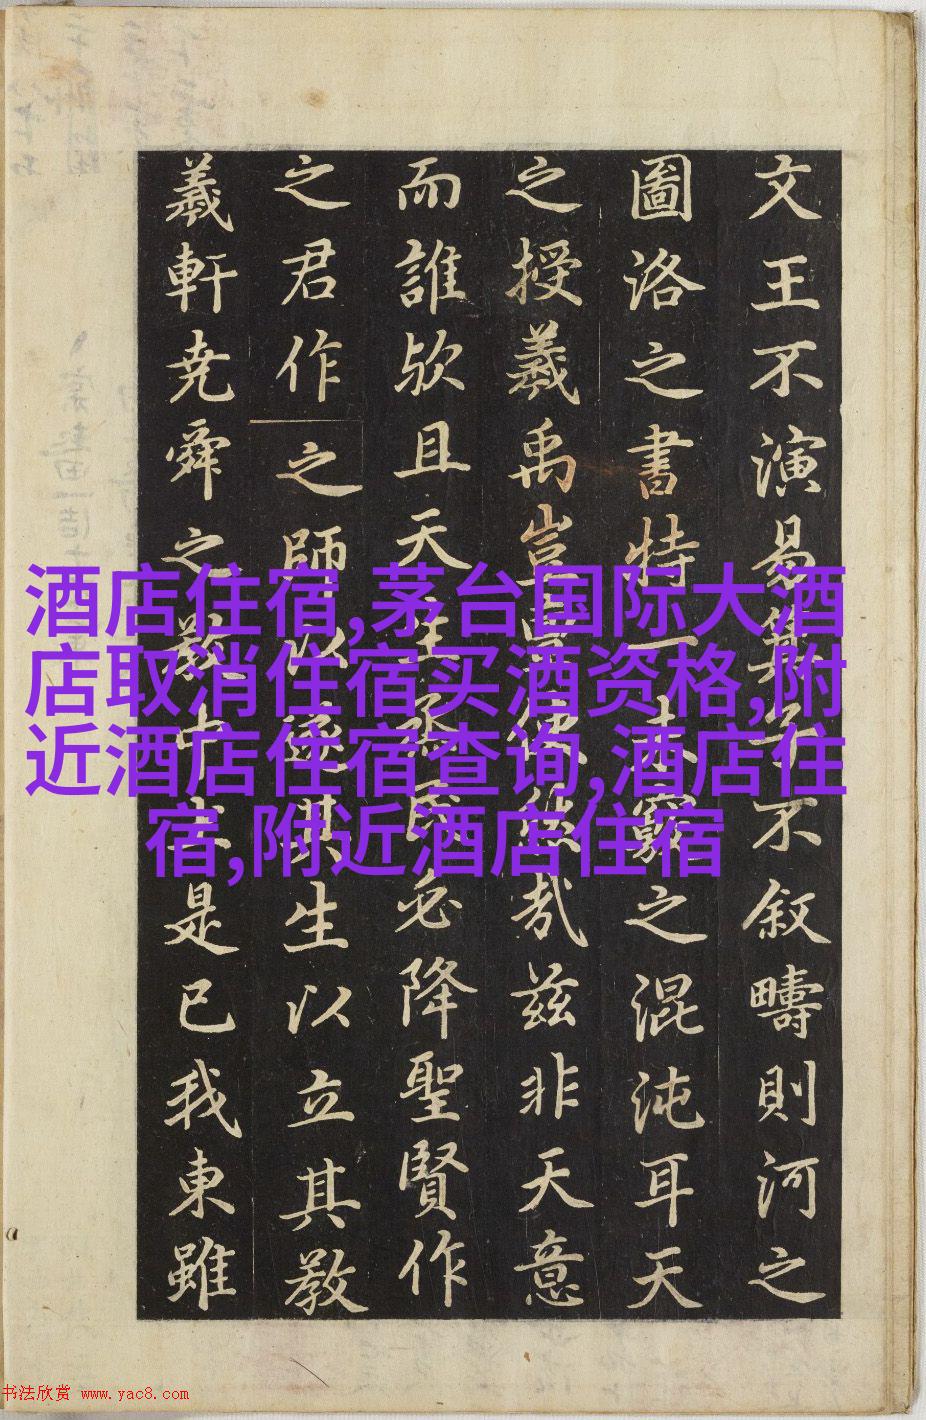 文王不演易不叙疇則河之
圖洛之書特一未竅之混沌耳天
之授羲禹豈然哉兹非天意
而誰欤且天民必降聖賢作
之君作之師以遂其生以立其教
羲軒尭舜之是已我東雖
酒店住宿,茅台国际大酒
店取消住宿买酒资格,附
近酒店住宿查询,酒店住
宿,附近酒店住宿
书法欣赏 www.yac8.com